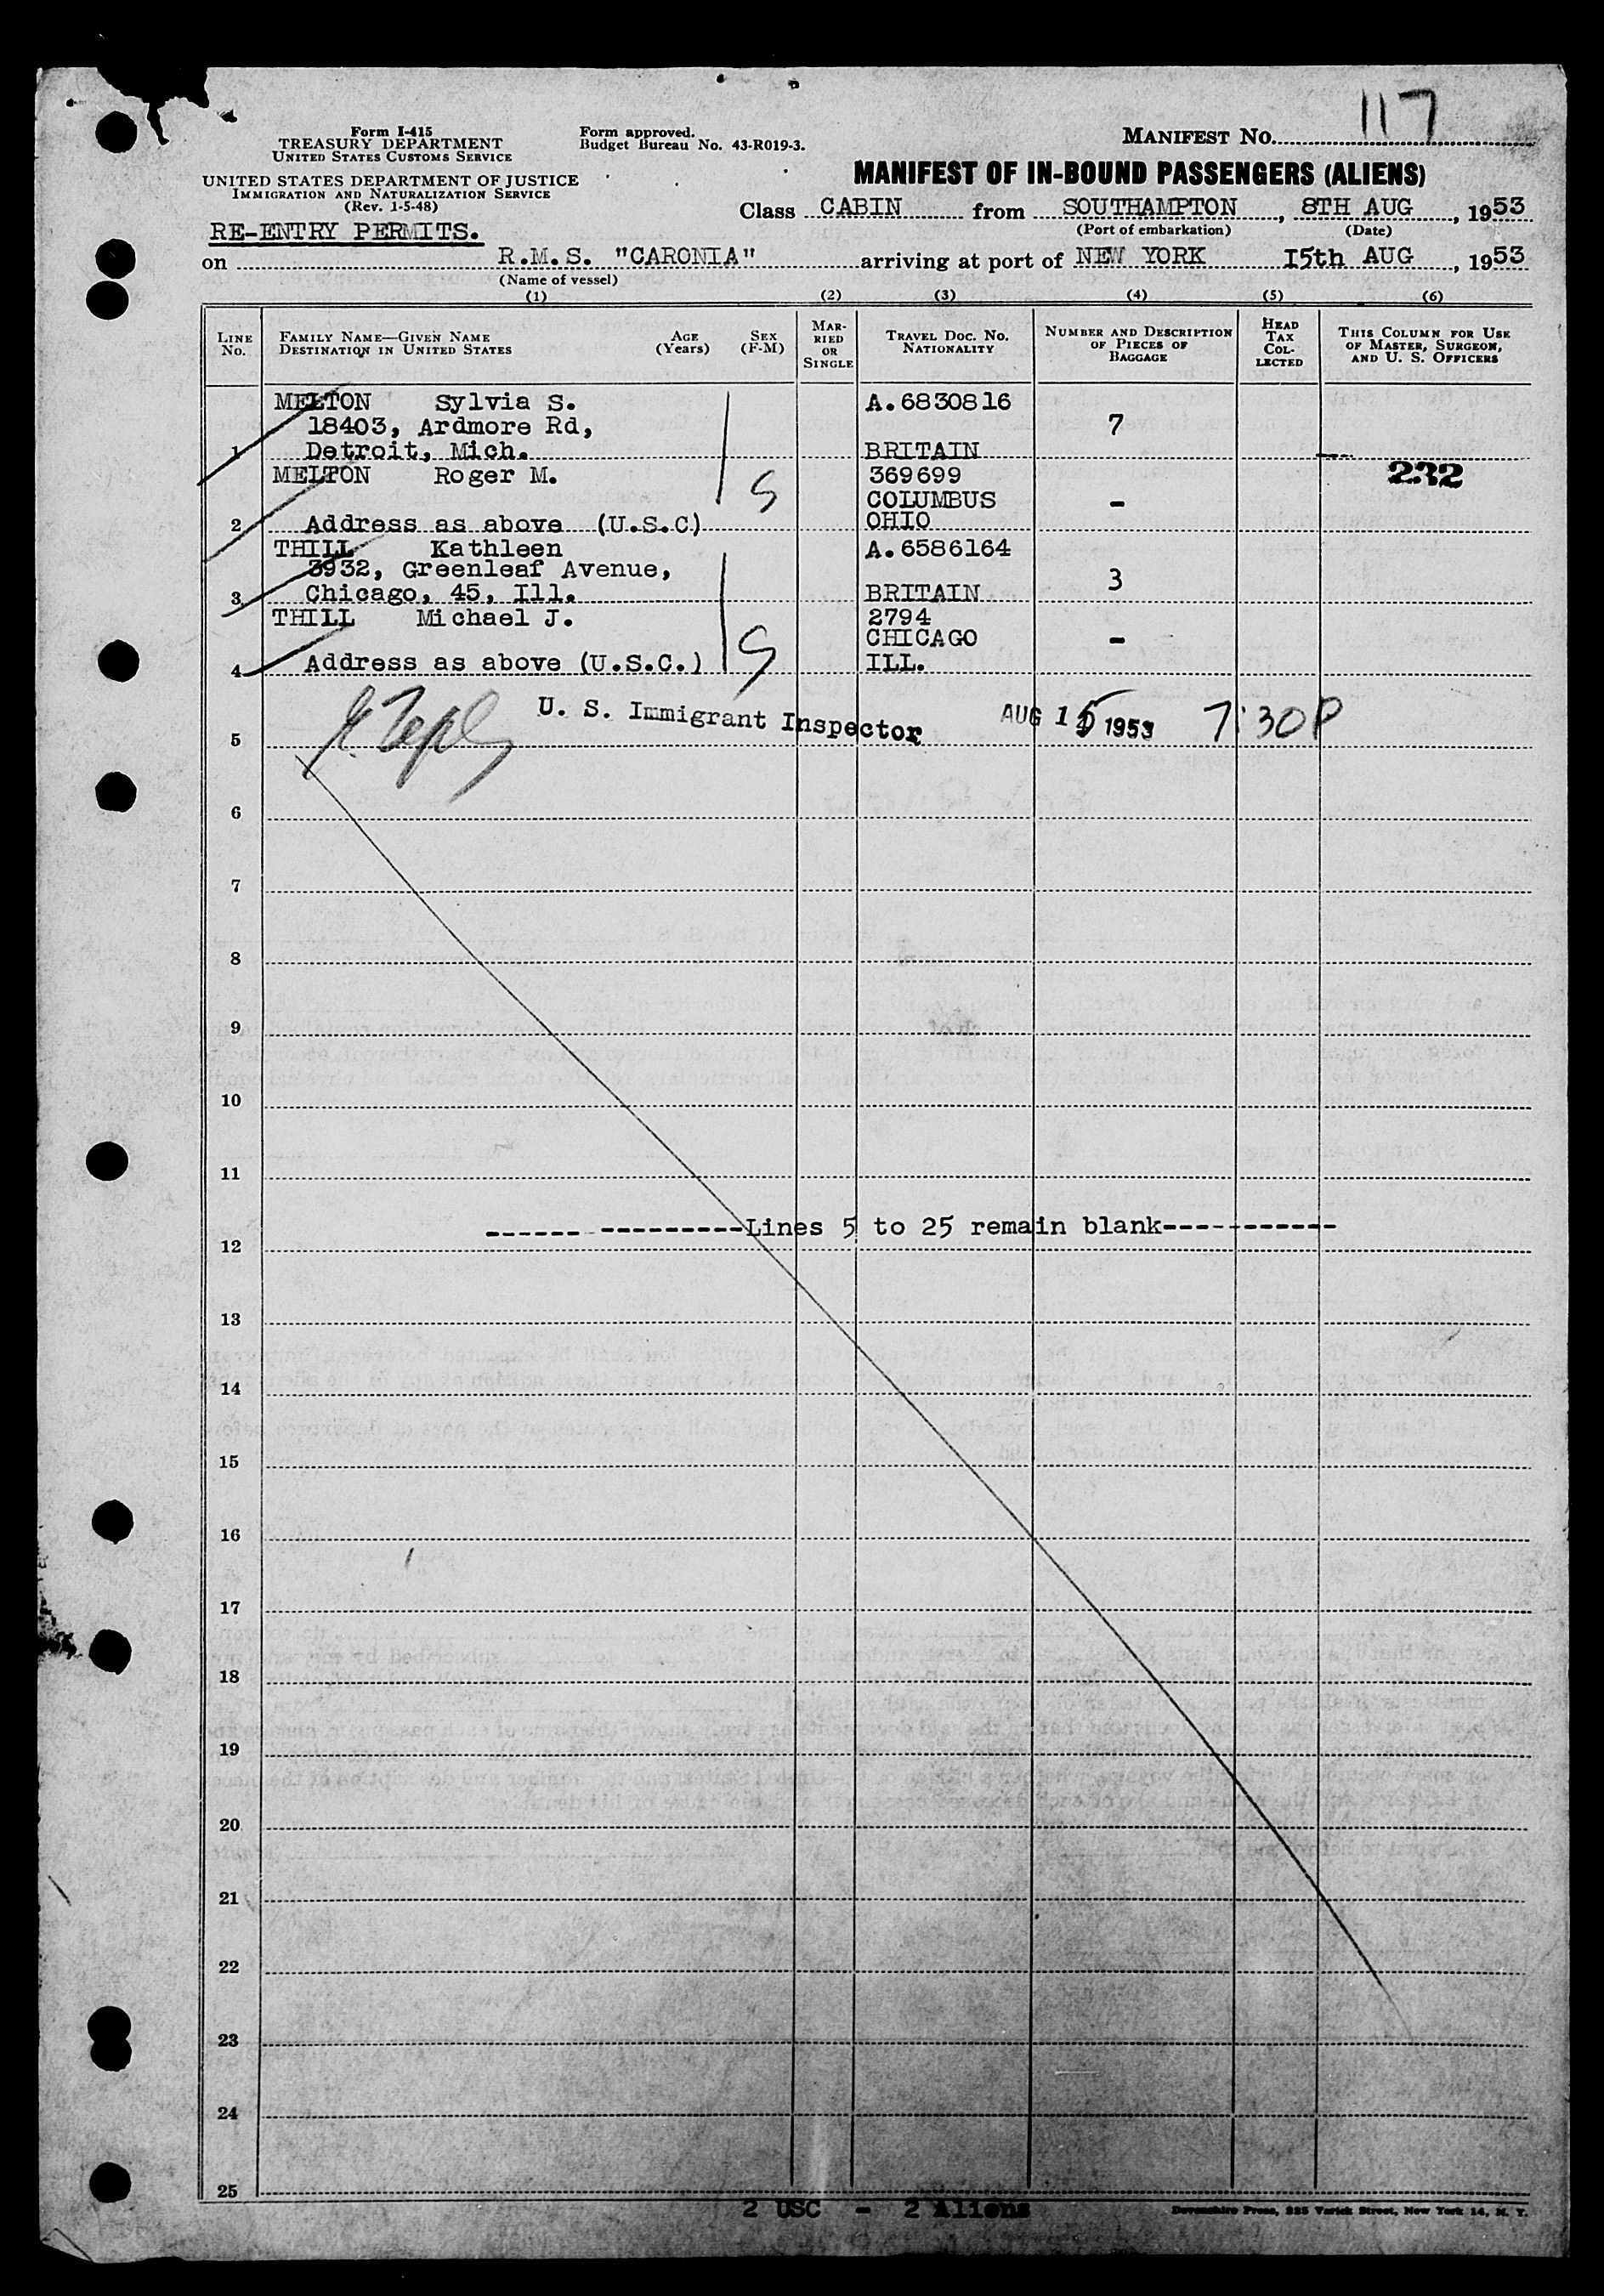 117
Form I-415
TREASURY DEPARTMENT
UNITED STATES CUSTOMS SERVICE
Form approved.
Budget Bureau No. 43-R019-3.
MANIFEST NO.
UNITED STATES DEPARTMENT OF JUSTICE
IMMIGRATION AND NATURALIZATION SERVICE
(Rev. 1-5-48)
MANIFEST OF IN-BOUND PASSENGERS (ALIENS)
Class CABIN from SOUTHAMPTON, 8TH AUG, 1953
(Port of embarkation) (Date)
RE-ENTRY PERMITS.
on R.M.S. "CARONIA" arriving at port of NEW YORK 15th AUG, 1953
(Name of vessel)
(1) (2) (3) (4) (5) (6)
LINE No. FAMILY NAME—GIVEN NAME DESTINATION IN UNITED STATES AGE (Years) SEX (F-M) MARRIED OR SINGLE TRAVEL DOC. NO. NATIONALITY NUMBER AND DESCRIPTION OF PIECES OF BAGGAGE HEAD TAX COLLECTED THIS COLUMN FOR USE OF MASTER, SURGEON, AND U. S. OFFICERS
MELTON Sylvia S. A.6830816
18403, Ardmore Rd, 7
1 Detroit, Mich. BRITAIN
MELTON Roger M. S 369699 232
COLUMBUS -
2 Address as above (U.S.C) OHIO
THILL Kathleen A.6586164
3932, Greenleaf Avenue, 3
3 Chicago, 45, Ill. BRITAIN
THILL Michael J. 2794
S CHICAGO -
4 Address as above (U.S.C.) ILL.
U. S. Immigrant Inspector AUG 15 1953 7:30P
5
6
7
8
9
10
11
---------------Lines 5 to 25 remain blank------------
12
13
14
15
16
17
18
19
20
21
22
23
24
25
2 USC - 2 Aliens
Devonshire Press, 225 Varick Street, New York 14, N. Y.